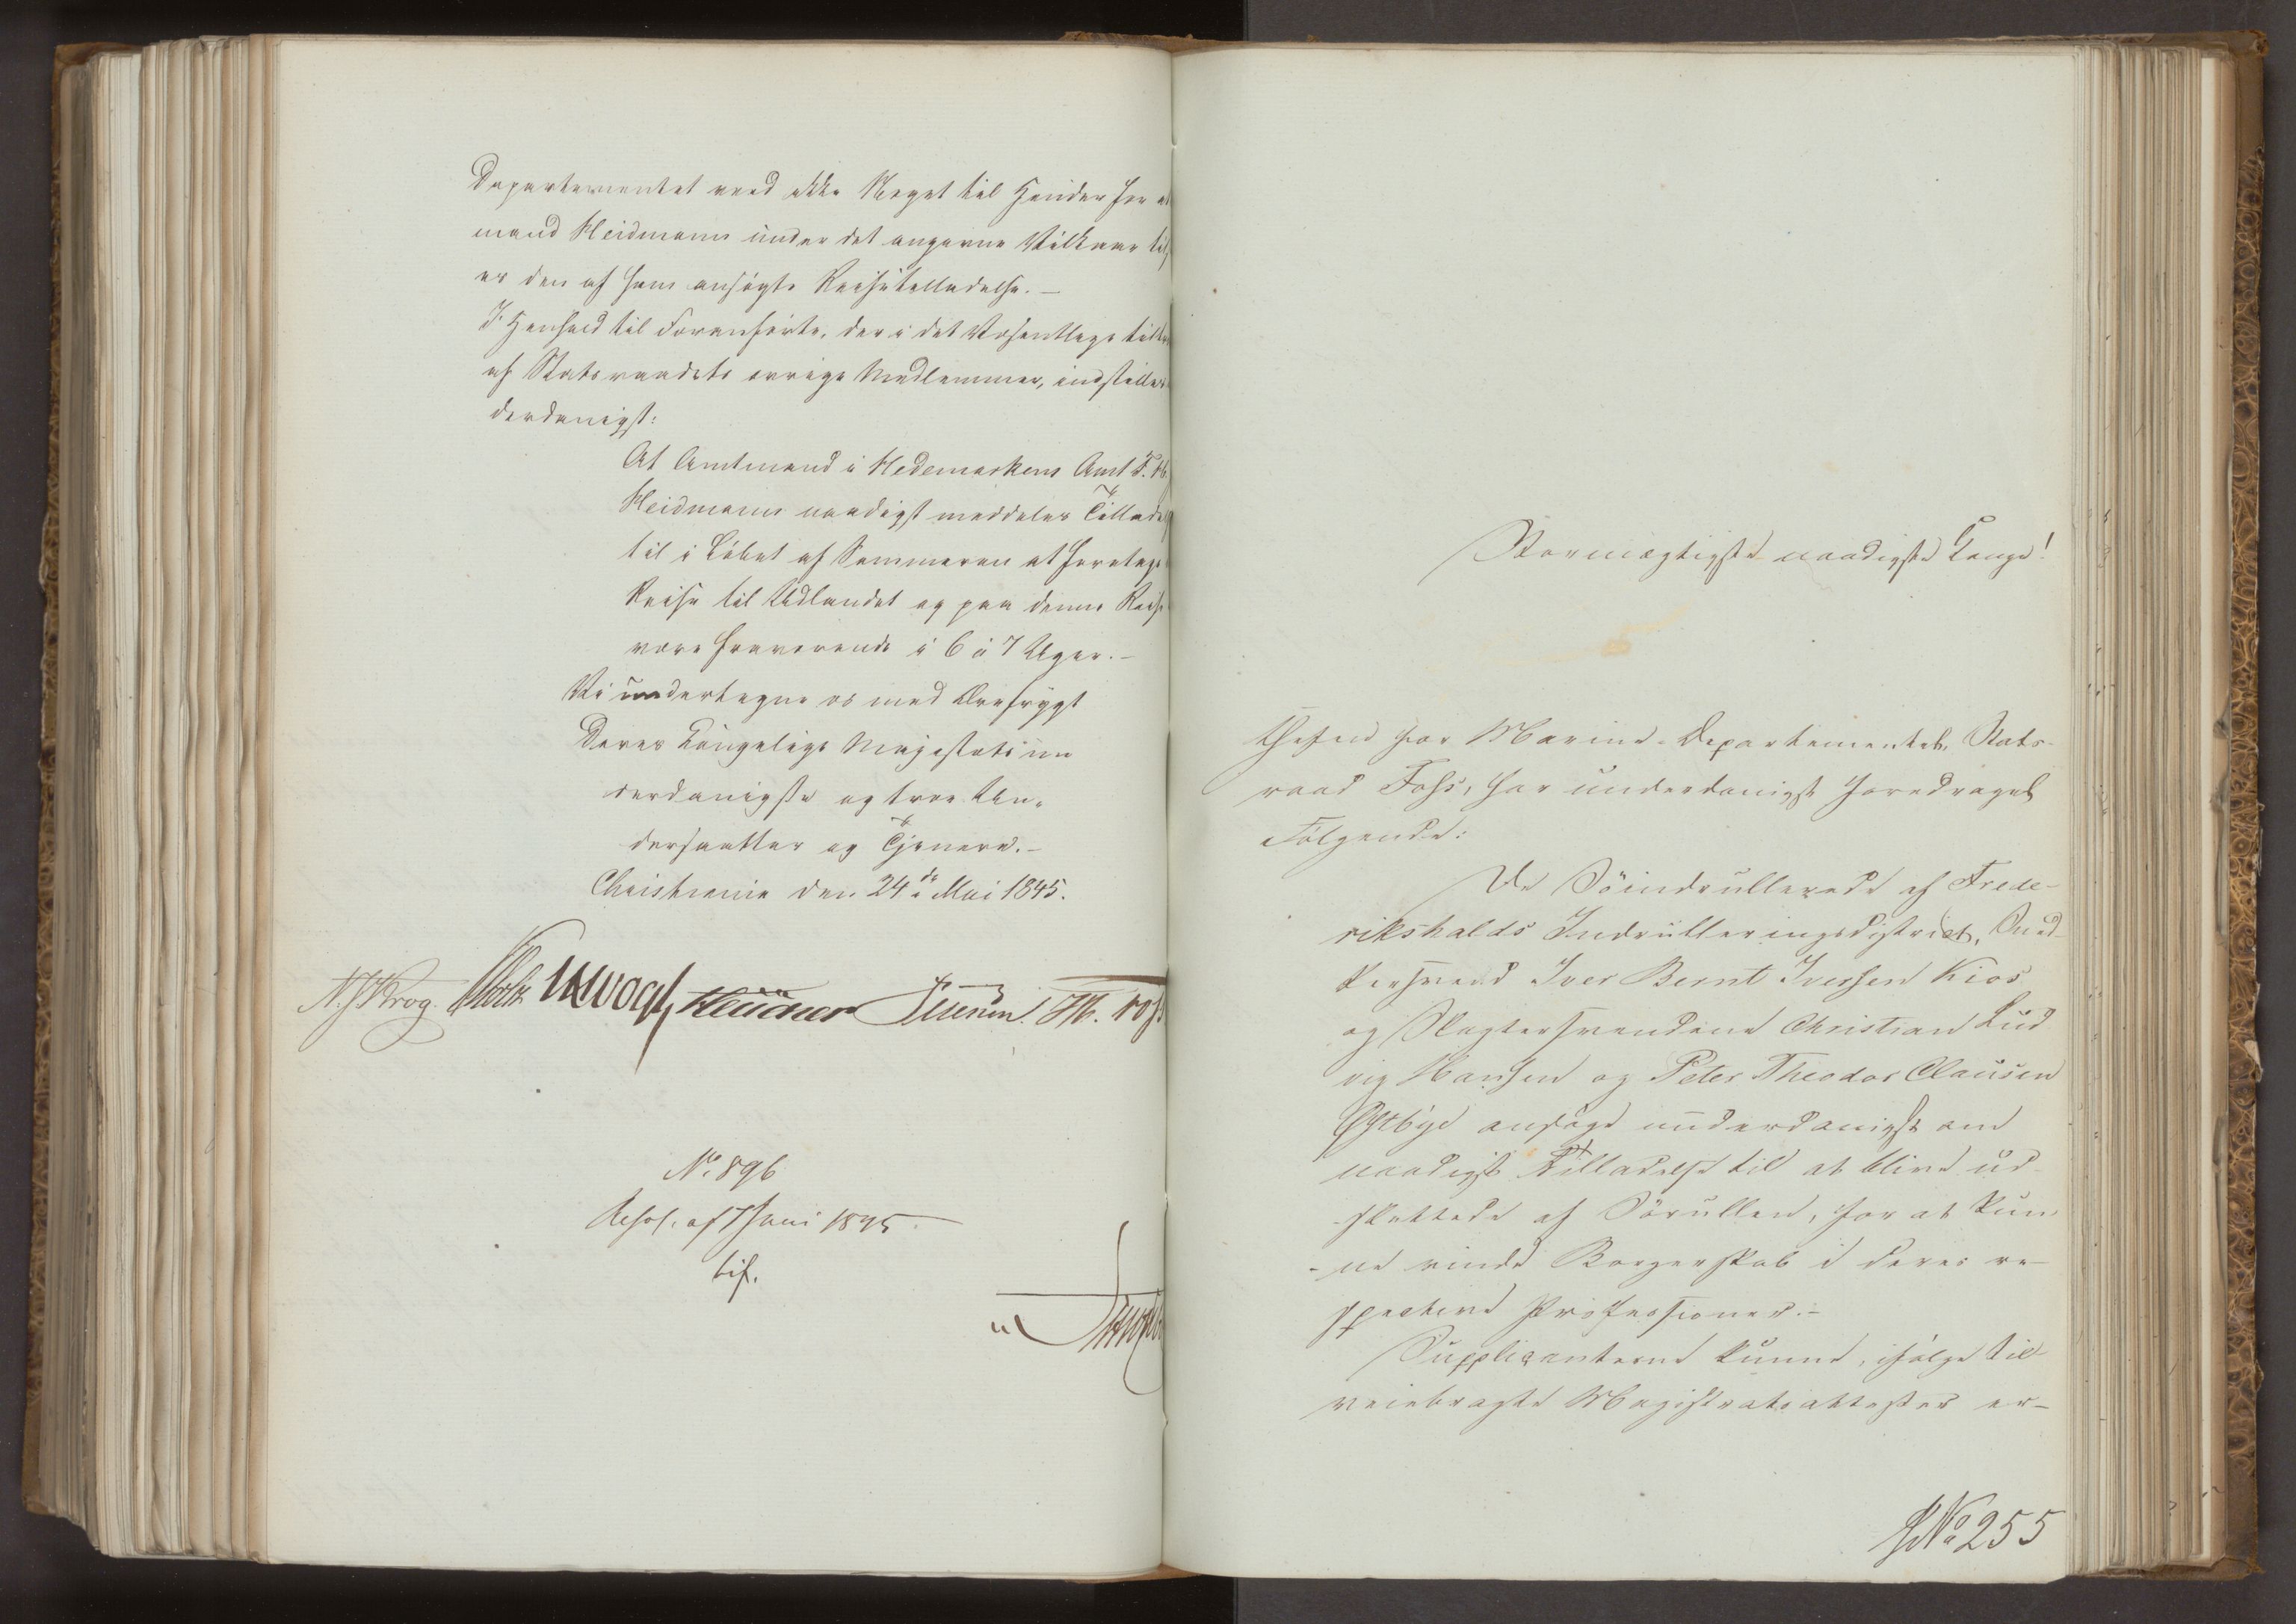 Departementet veed ikke Noget til Hinder for at
mand Heidmann under det angivne Vilkaar til
es den af ham ansøgte Reisetilladelse. —
I Henhold til Foranførte, der i det Væsentlige tiltr
af Statsraadets øvrige Medlemmer, indstilles
derdanigst:
At Amtmand i Hedemarkens Amt
Heidmann naadigst meddeles Tillad
til i Løbet af Sommeren at foretage
Reise til Udlandet og paa denne Reis
være fraværende i 6 à 7 Uger. —
Vi undertegne os med Ærefrygt
Deres Kongelige Majestæts un
derdanigste og troe Un-
dersaatter og Tjenere. —
Christiania den 24de Mai 1845.
N. J. Krog. Vogt
No. 896
Resol. af 7 Juni 1845.
bif.
Stormægtigste naadigste Konge!
Chefen for Marine-Departementet, Stats-
raad Foss, har underdanigst foredraget
Følgende:
De Söindrullerede af Frede-
rikshalds Indrulleringsdistrict, Sned-
kersvend Iver Bernt Iversen Kios
og Slagtersvendene Christian Lud
vig Hansen og Peter Theodor Clausen
Østbye ansøge underdanigst om
naadigst Tilladelse til at blive ud-
slettede af Sörullen, for at kun
-ne vinde Borgerskab i deres re-
spective Professioner. —
Supplicanterne kunne, ifølge til-
veiebragte Magistratsattester er-
No 255